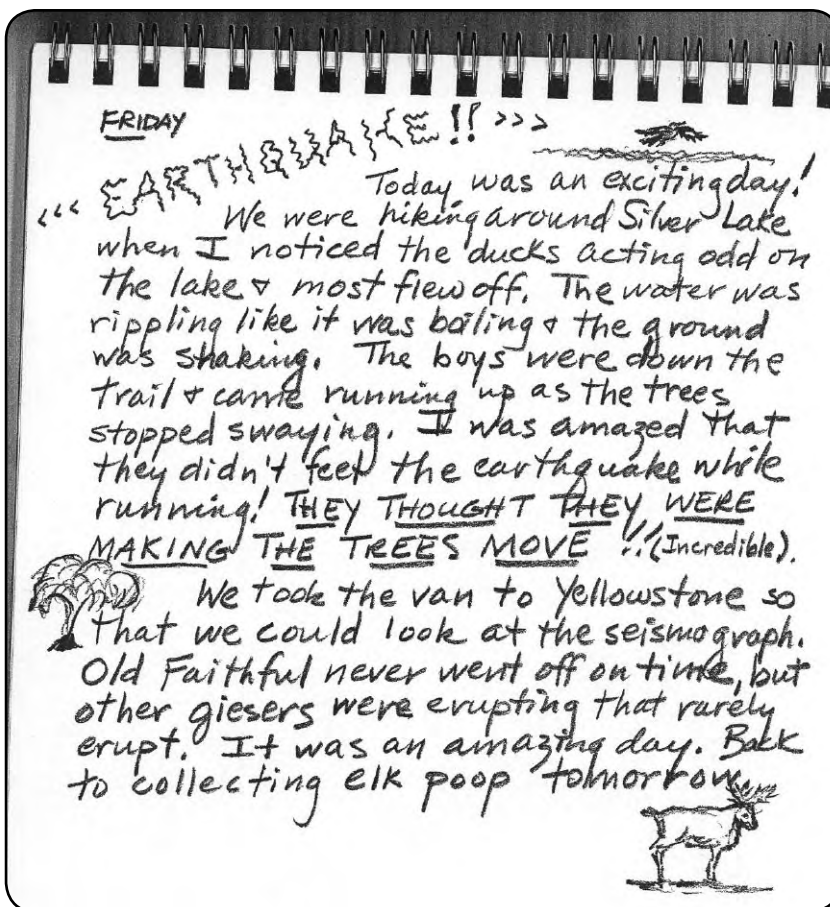 FRIDAY
<<< EARTHQUAKE!! >>>
Today was an exciting day!
We were hiking around Silver Lake
when I noticed the ducks acting odd on
the lake & most flew off. The water was
rippling like it was boiling & the ground
was shaking. The boys were down the
trail & came running up as the trees
stopped swaying. I was amazed that
they didn't feel the earthquake while
running! THEY THOUGHT THEY WERE
MAKING THE TREES MOVE !!(Incredible).
We took the van to Yellowstone so
that we could look at the seismograph.
Old Faithful never went off on time, but
other giesers were erupting that rarely
erupt. It was an amazing day. Back
to collecting elk poop tomorrow.